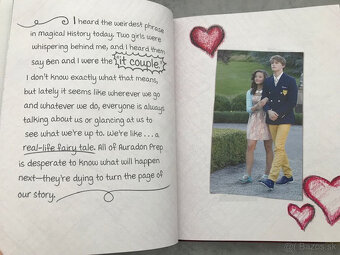 I heard the weirdest phrase
in magical History today. Two girls were
whispering behind me, and I heard them
say Ben and I were the "it couple."
I don't know exactly what that means,
but lately it seems like wherever we go
and whatever we do, everyone is always
talking about us or glancing at us to
see what we're up to. We're like . . . a
real-life fairy tale. All of Auradon Prep
is desperate to know what will happen
next—they're dying to turn the page of
our story.
(c) Bazos.sk